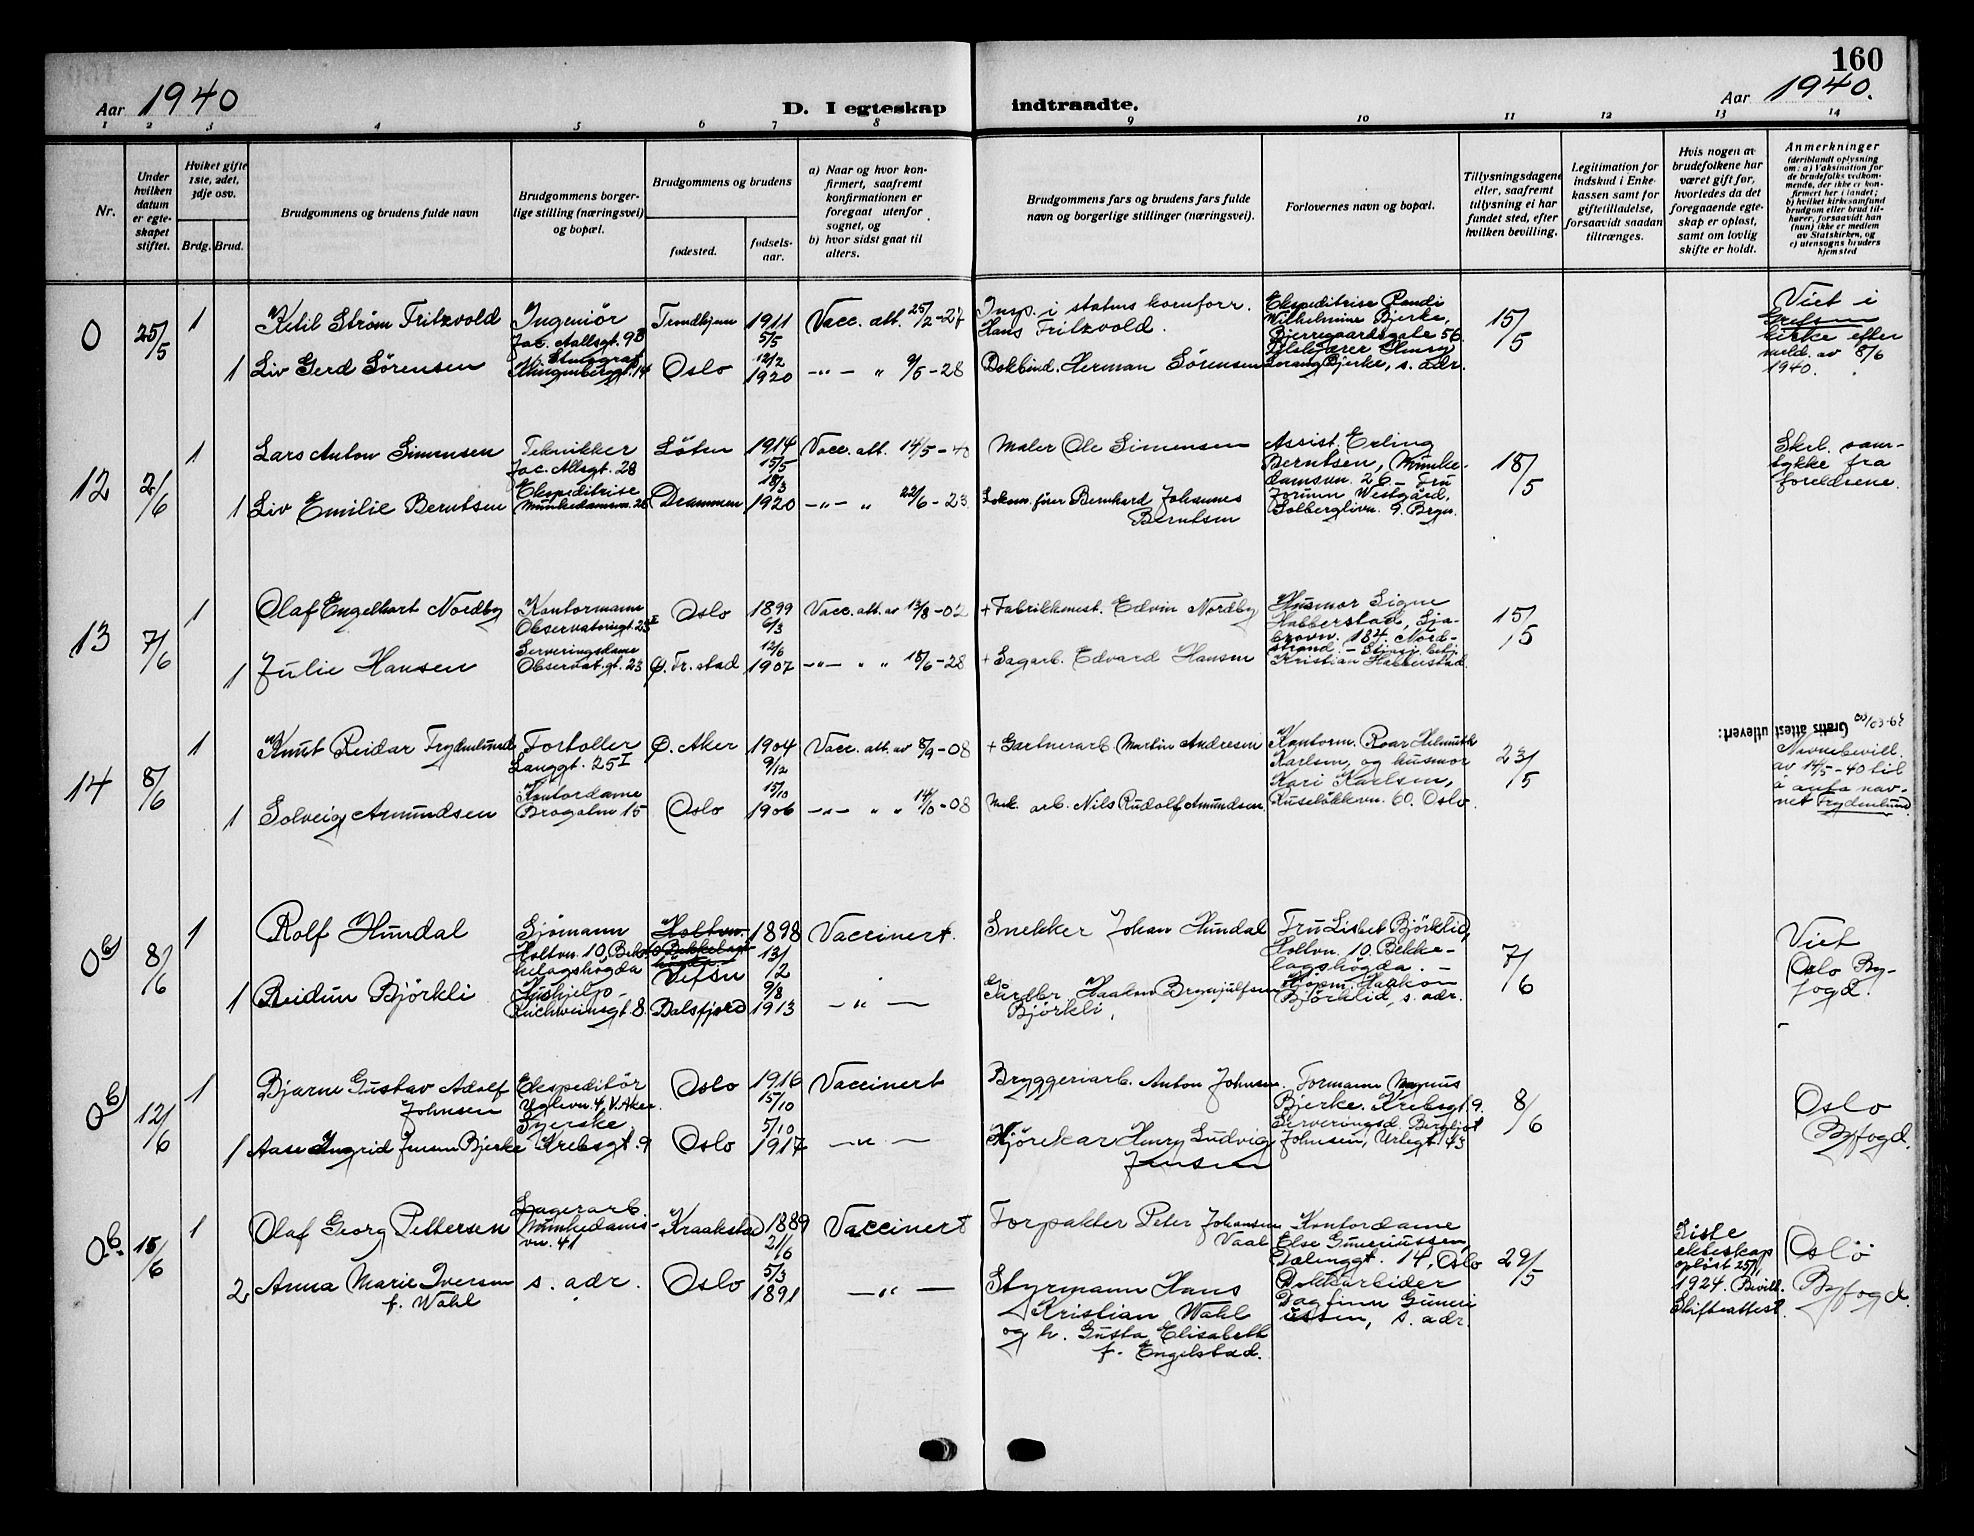 160
Aar 1940
D. I egteskap indtraadte.
Aar 1940.
1 2 3 4 5 6 7 8 9 10 11 12 13 14
Nr.
Under
hvilken
datum
er egte-
skapet
stiftet.
Hvilket gifte
1ste, 2det,
3dje osv.
Brdg. Brud.
Brudgommens og brudens fulde navn
Brudgommens borger-
lige stilling (næringsvei)
og bopæl.
Brudgommens og brudens
fødested.
fødsels-
aar.
a) Naar og hvor kon-
firmert, saafremt
konfirmationen er
foregaat utenfor
sognet, og
b) hvor sidst gaat til
alters.
Brudgommens fars og brudens fars fulde
navn og borgerlige stillinger (næringsvei).
Forlovernes navn og bopæl.
Tillysningsdagene
eller, saafremt
tillysning ei har
fundet sted, efter
hvilken bevilling.
Legitimation for
indskud i Enke-
kassen samt for
giftetilladelse,
forsaavidt saadan
tiltrænges.
Hvis nogen av
brudefolkene har
været gift før,
hvorledes da det
foregaaende egte-
skap er opløst,
samt om lovlig
skifte er holdt.
Anmerkninger
(deriblandt oplysning
om: a) Vaksination for
de brudefolks vedkom-
mende, der ikke er kon-
firmert her i landet;
b) hvilket kirkesamfund
brudgom eller brud til-
hører, forsaavidt han
(hun) ikke er medlem
av Statskirken, og
c) utensogns bruders
hjemsted
0
25/5
1
Ketil Strøm Fritzvold
Ingeniør
Jac. Aallsgt. 9B
Trondhjem
1911
5/5
Vacc. att. 25/2-27
Insp. i statens kornforr.
Hans Fritzvold.
Ekspeditrise Randi
Wilhelmine Bjerke,
Bjerregaardsgate 56
Lorang Bjerke, s. adr.
15/5
Viet i
kirke efter
meld. av 8/6
1940.
1
Liv Gerd Sørensen
Klingenberggt. 14
Oslo
12/2
1920
-"- " 9/5-28
Bokbind. Herman Sørensen
12
2/6
1
Lars Anton Simensen
Teknikker
Jac. Allsgt. 28
Løten
1914
15/5
Vacc. att. 14/5-40
Maler Ole Simensen
Assist. Erling
Berntsen, Munke-
damsvn. 26 - Fru
Jorunn Westgård,
Solberglivn. 9. Bryn.
18/5
Skel. sam-
tykke fra
foreldrene.
1
Liv Emilie Berntsen
Ekspeditrise
Munkedamsvn. 26
Drammen
18/3
1920
-"- " 22/6-23
Lokom.fører Bernhard Johannes
Berntsen
13
7/6
1
Olaf Engelhart Nordby
Kontormann
Observatoriegt. 23 II
Oslo
1899
6/3
Vacc. att. av 13/8-02
+ Fabrikkmest. Edvin Nordby
Husmor Signe
Habberstad, Lja-
brovn. 184. Nord-
strand. -
Kristian Habberstad
15/5
1
Julie Hansen
Serveringsdame
Observat.gt. 23
Ø. Fr.stad
12/6
1907
-"- " " 15/6-28
+ Sagarb. Edvard Hansen
14
8/6
1
Knut Reidar Frydenlund
Fortoller
Langgt. 25 I
Ø. Aker
1904
9/12
Vacc. att. av 8/9-08
+ Gartnerarb. Martin Andresen
Kontorm. Roar Helmuth
Karlsen, og husmor
Kari Karlsen,
Ruseløkkvn. 60. Oslo.
23/5
Gratis attest utlevert:
Navnebevill.
av 14/5-40 til
å anta nav-
net Frydenlund
1
Solveig Amundsen
Kontordame
Brogatn 15
Oslo
15/10
1906
-"- " " 14/10-08
Mek. arb. Nils Rudolf Amundsen.
0b
8/6
1
Rolf Hundal
Sjømann
Holtvn. 10, Bek-
kelagshøgda
Vefsn
1898
13/2
Vaccinert.
Snekker Johan Hundal
Fru Lisbet Bjørklid,
Holtvn. 10. Bekke-
lagshøgda. -
Kjøpm. Haakon
Bjørklid, s. adr.
7/6
Viet
Oslo By-
fogd.
1
Reidun Bjørkli
Hushjelp -
Eilert Sundtsgt. 8.
Balsfjord
9/8
1913
-"-
Gårdbr. Haakon Brynjulfsen
Bjørkli,
0b
12/6
1
Bjarne Gustav Adolf
Johnsen
Ekspeditør
Uglevn. 4, V. Aker.
Oslo
1916
15/10
Vaccinert
Bryggeriarb. Anton Johnsen.
Formann Magnus
Bjerke. Krebsgt. 9.
Serveringsd. Bergljot
Johnsen, Urtegt. 43
8/6
Oslo
Byfogd.
1
Aase Ingrid Jensen Bjerke
Syerske
Krebsgt. 9
Oslo
5/10
1917
-"-
Kjørekar Henry Ludvig
Jensen
0b.
15/6
1
Olaf Georg Pettersen
Lagerarb.
Munkedams-
vn. 41
Kraakstad
1889
21/6
Vaccinert
Forpakter Peter Johansen
Vaal
Kontordame
Else Guneriussen,
Dælenggt. 14, Oslo
Dokkarbeider
Dagfinn Guneri
ussen, s. adr.
29/5
Siste
ekteskap
opløst 25/1,
1924. Bevill.
Skifteattest.
Oslo
Byfogd.
2
Anna Marie Iversen
f. Wahl
s. adr.
Oslo
5/3
1891
-"-
Styrmann Hans
Kristian Wahl
og h. Gusta Elisabeth
f. Engelstad.